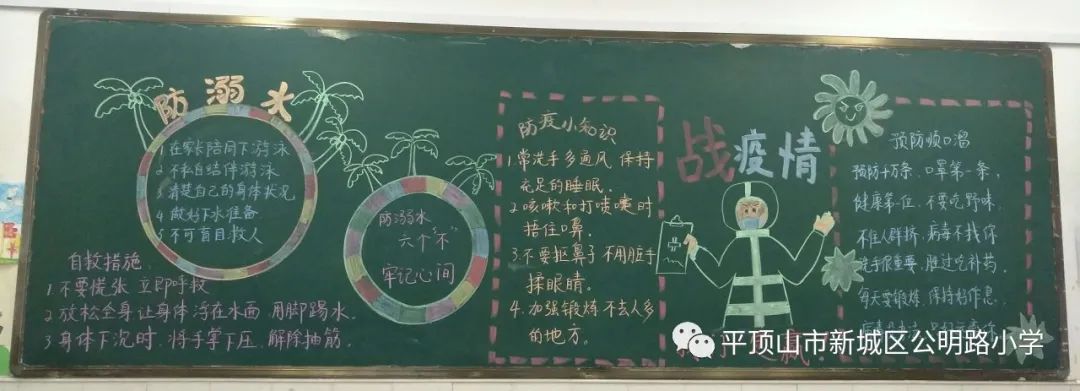 防溺水
1 在家长陪同下游泳
2 不私自结伴游泳
3 清楚自己的身体状况
4 做好下水准备
5 不可盲目救人
自救措施
1 不要慌张 立即呼救
2 放松全身 让身体浮在水面 用脚踢水。
3 身体下沉时, 将手掌下压, 解除抽筋。
防溺水
六个“不”
牢记心间
防疫小知识
1.常洗手多通风 保持
充足的睡眠.
2 咳嗽和打喷嚏时
捂住口鼻.
3.不要抠鼻子 不用脏手
揉眼睛.
4.加强锻炼 不去人多
的地方.
战疫情
预防顺口溜
预防千万条, 口罩第一条,
健康第一位, 不要吃野味,
不往人群挤, 病毒不找你
洗手很重要, 胜过吃补药,
每天要锻炼, 保持好作息,
平顶山市新城区公明路小学